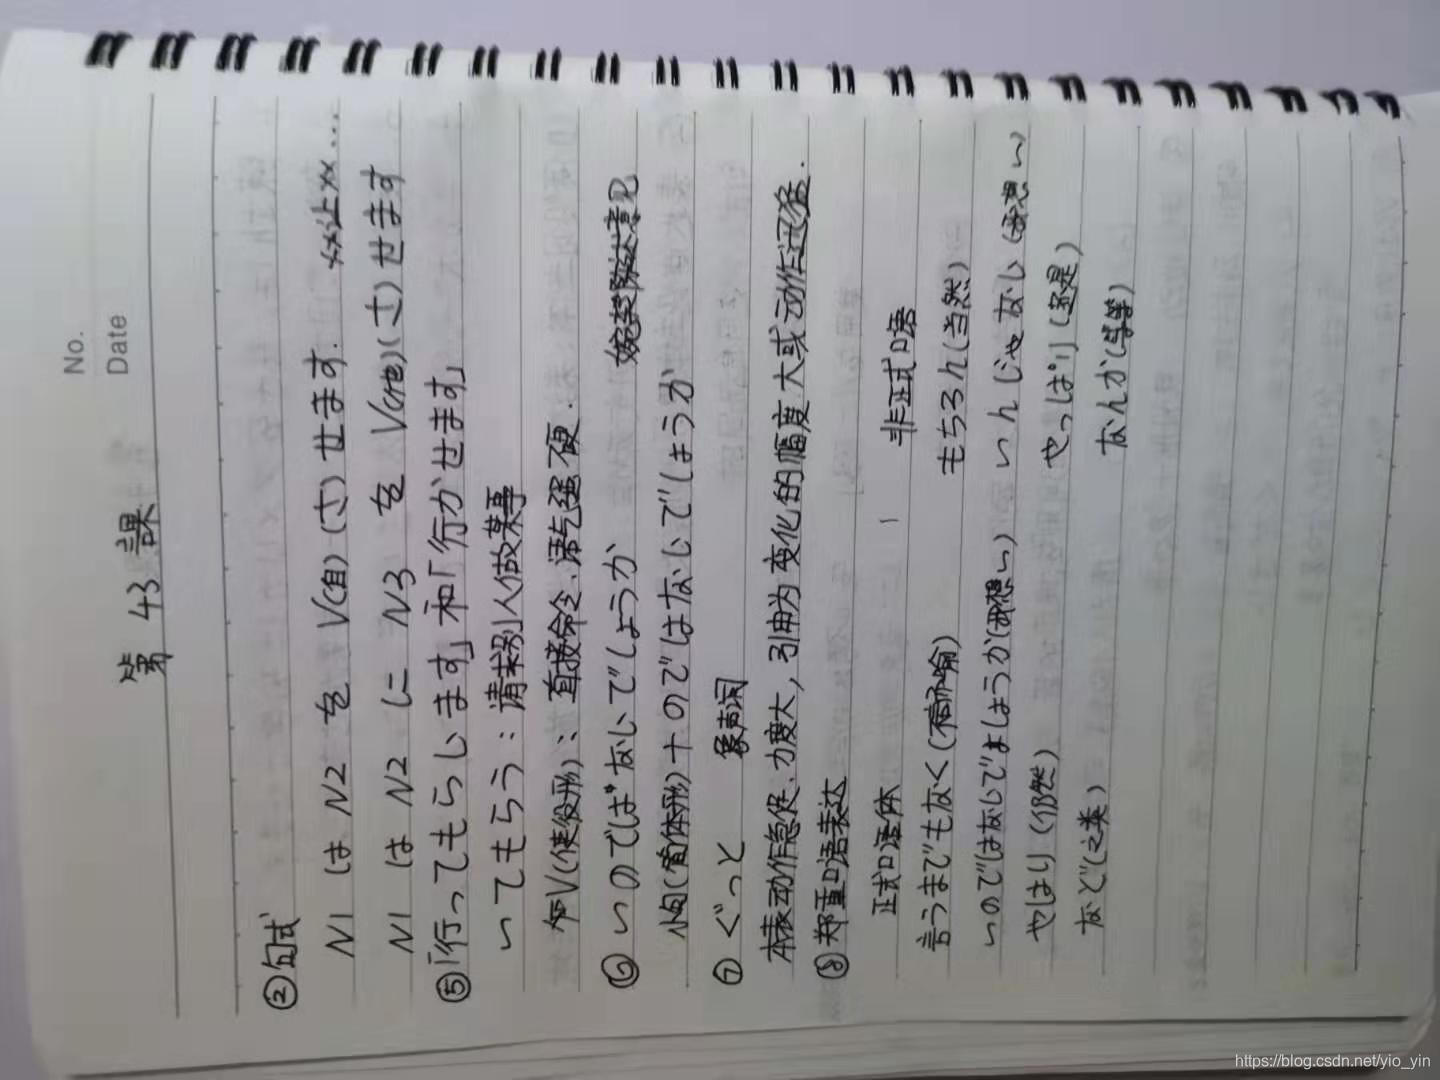 No.
Date
第 43 課
②句式
N1 は N2 を V(自)(さ)せます. xx让xx...
N1 は N2 に N3 を V(他)(さ)せます
⑤「行ってもらします」和「行かせます」
〜てもらう：请求别人做某事
V(使役形)：直接命令、语气强硬.
⑥ 〜のではないでしょうか 婉转陈述意见
小句(简体形)+のではないでしょうか
⑦ ぐっと 象声词
本表动作急促、力度大，引用为变化的幅度大或动作迅猛.
⑧ 郑重口语表达
正式口语体 非正式口语
言うまでもなく(不用说) もちろん(当然)
〜のではないでしょうか(我想〜) 〜んじゃない(我想〜)
やはり(仍然) やっぱり(还是)
など(之类) なんか(等等)
https://blog.csdn.net/yio_yin